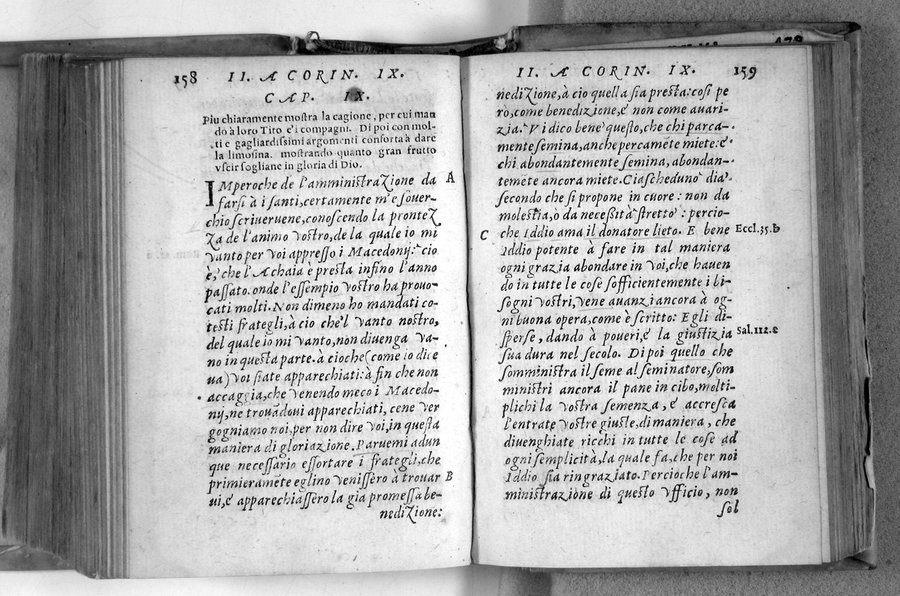 158 II. A CORIN. IX.
CAP. IX.
Piu chiaramente mostra la cagione, per cui man
dò à loro Tito e i compagni. Di poi con mol-
ti e gagliardissimi argomenti conforta à dare
la limosina. mostrando quanto gran frutto
vscir sogliane in gloria di Dio.
IMperoche de l'amministrazione da A
farsi à i santi, certamente m'e souer-
chio scriueruene, conoscendo la prontez
za de l'animo vostro, de la quale io mi
vanto per voi appresso i Macedonij: cio
è, che l'Achaia è presta infino l'anno
passato. onde l'essempio vostro ha prouo-
cati molti. Non dimeno ho mandati co-
testi frategli, à cio che'l vanto nostro,
del quale io mi vanto, non diuenga va-
no in questa parte. à cioche (come io dice
ua) voi siate apparechiati: à fin che non
accaggia, che venendo meco i Macedo-
nij, ne trouadoui apparechiati, cene ver
gogniamo noi, per non dire voi, in questa
maniera di gloriazione. Paruemi adun
que necessario essortare i frategli, che
primieramẽte eglino venissero à trouar B
ui, é apparechiassero la gia promessa be-
nedizione:
II. A CORIN. IX. 159
nedizione, à cio quella sia presta: cosi pe
rò, come benedizione, è non come auari-
zia. Vi dico bene questo, che chi parca-
mente semina, anche percamẽte miete: e
chi abondantemente semina, abondan-
temẽte ancora miete. Ciascheduno dia
secondo che si propone in cuore: non da
molestia, o da necisità stretto: percio-
C che Iddio ama il donatore lieto. E bene Eccl.35.b
Iddio potente à fare in tal maniera
ogni grazia abondare in voi, che hauen
do in tutte le cose sofficientemente i bi-
sogni vostri, vene auanzi ancora à og-
ni buona opera, come è scritto: Egli di-
sperse, dando à poueri, é la giustizia Sal.112.e
sua dura nel secolo. Di poi quello che
somministra il seme al seminatore, som
ministri ancora il pane in cibo, molti-
plichi la vostra semenza, é accresca
l'entrate vostre giuste, di maniera, che
diuenghiate ricchi in tutte le cose ad
ogni semplicità, la quale fa, che per noi
Iddio sia ringraziato. Percioche l'am-
ministrazione di questo vfficio, non
sol